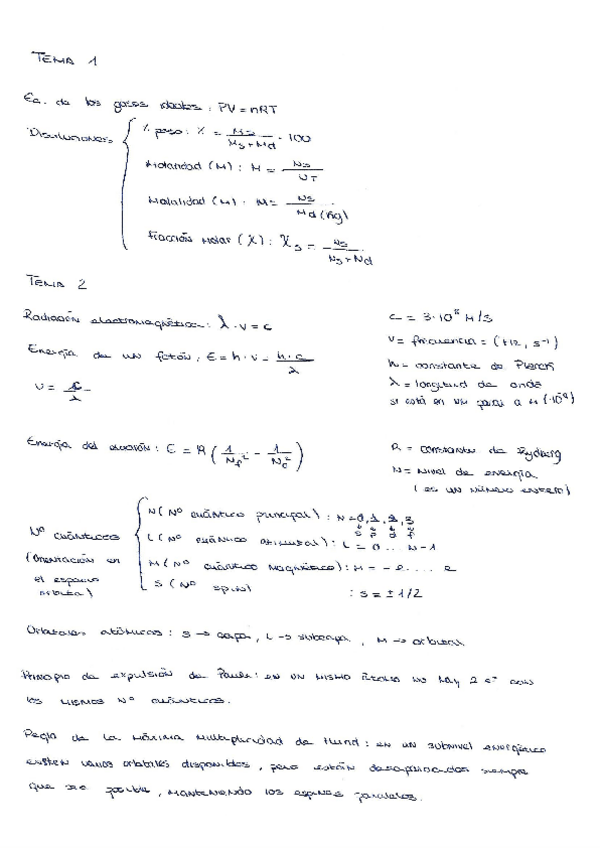 TEMA 1
Ec. de los gases ideales: PV = nRT
Disoluciones
% peso: % = Ms / Ms + Md · 100
Molaridad (M): M = Ns / VT
Molalidad (M): M = Ns / Md (Kg)
Fracción molar (X): Xs = Ns / Ns + Nd
TEMA 2
Radiación electromagnética: λ · ν = c
c = 3·10⁸ m/s
ν = frecuencia = (Hz, s⁻¹)
Energía de un fotón: E = h · ν = h·c / λ
h = constante de Planck
ν = c / λ
λ = longitud de onda
si está en nm pasar a m (·10⁻⁹)
Energía del electrón: E = R (1 / Nf² - 1 / Nc²)
R = constante de Rydberg
N = nivel de energía
(es un número entero)
Nº cuánticos
(orientación en
el espacio
orbital)
N (Nº cuántico principal): N = 0, 1, 2, 3
s p d f
L (Nº cuántico azimutal): L = 0 .. N-1
M (Nº cuántico magnético): M = - l .... l
S (Nº spin) : S = ± 1/2
Orbitales atómicos: s → capa, L → subcapa, M → orbital
Principio de expulsión de Pauli: en un mismo átomo no hay 2 e⁻ con
los mismos Nº cuánticos.
Regla de la máxima multiplicidad de Hund: en un subnivel energético
existen varios orbitales disponibles, pero están desapareados siempre
que sea posible, manteniendo los espines paralelos.